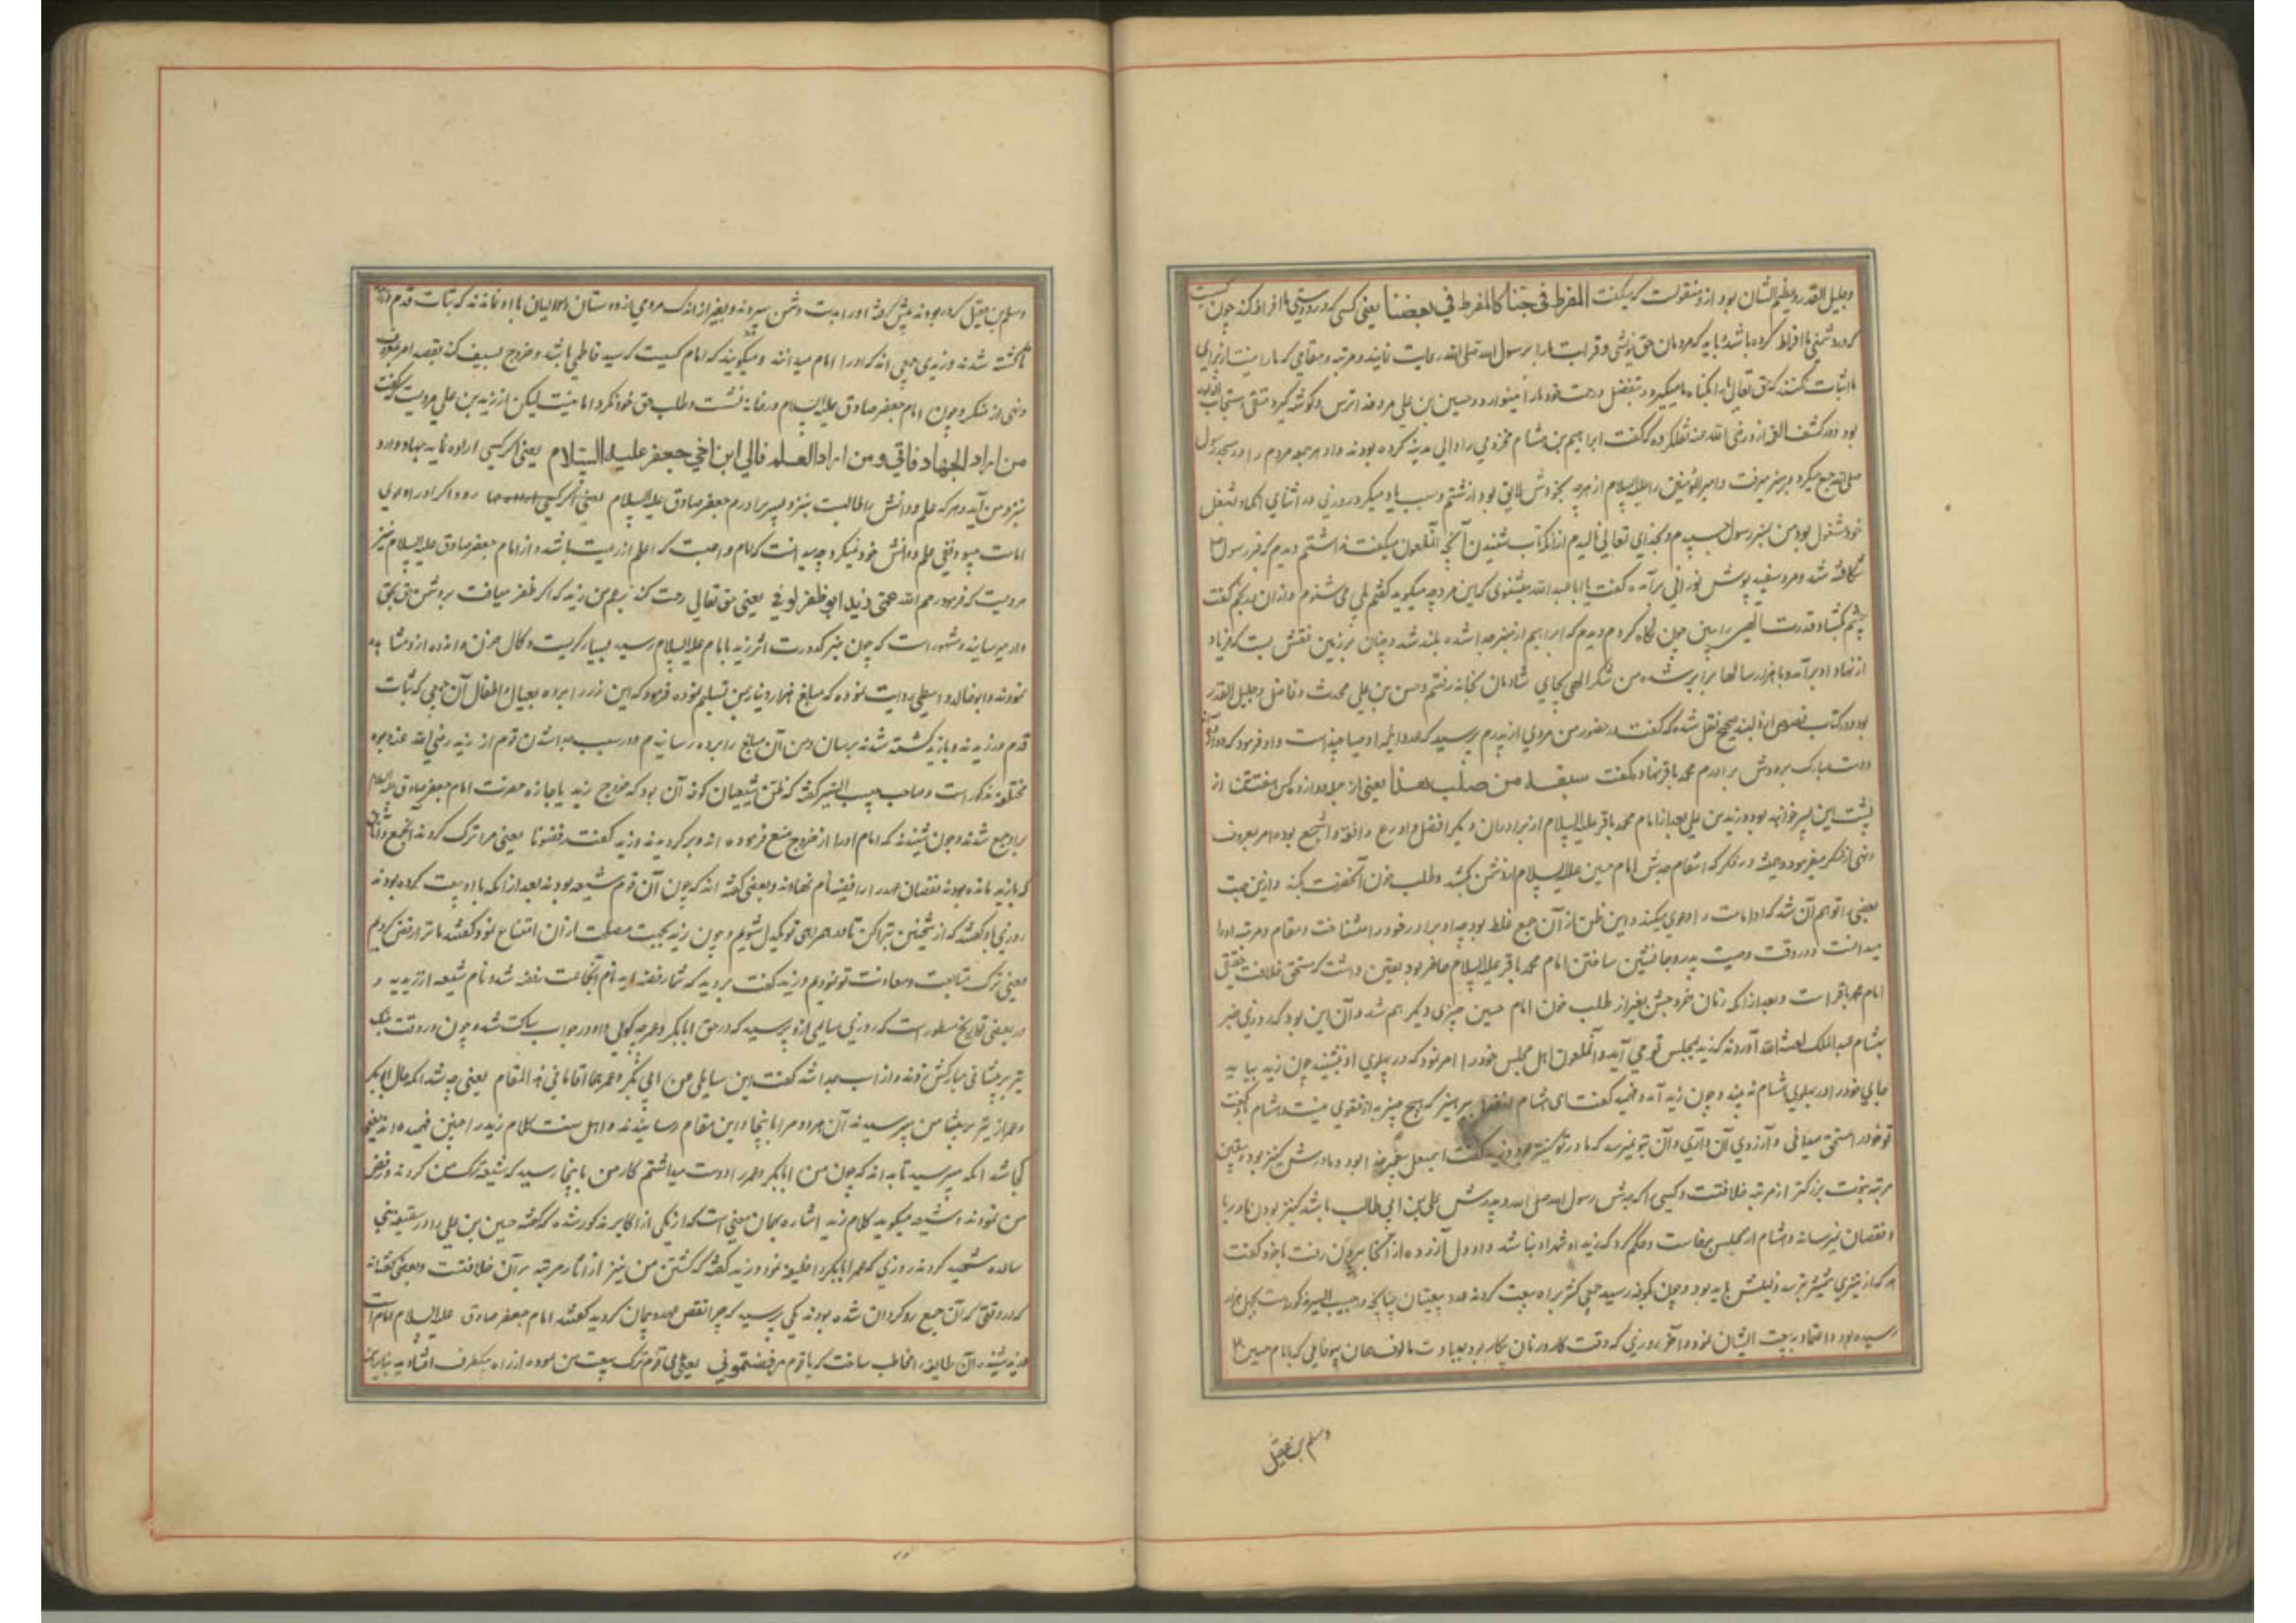 وجلیل القدر وعظیم الشان بود از و منقولست که میگفت المفرط فی حبنا کالمفرط فی بغضنا یعنی کسی که در دوستی ما افراط کند چون کسیست
که در دشمنی ما افراط کرده باشد باید که مردمان حق خویشی و قرابت ما را برسول الله صلی الله رعایت نمایند و مرتبه و مقامی که ما را نیست از برای
ما اثبات نکنند که حق تعالی ما را بگناه ما میگیرد و بتفضل و رحمت خود ما را مینوازد و حسین بن علی مرد خدا ترس و گوشه گیر و متقی مستجاب الدعوه
بود و در کشف الغمه از و رضی الله عنه نقل کرده که گفت ابراهیم بن هشام مخزومی را والی مدینه کرده بودند و او هر جمعه مردم را در مسجد رسول
صلی الله جمع میکرد و بر منبر میرفت و امیرالمؤمنین را علیه السلام از هر چه بخودش لایق بود از شتم و سب یاد میکرد روزی در اثنای آنکه او بشغل
خود مشغول بود من بمنبر رسول چسپیدم و بخدای تعالی نالیدم از آنکه تاب شنیدن آنچه آنملعون میگفت نداشتم دیدم که قبر رسول
شکافته شد و مرد سفید پوش نورانی برآمده گفت یا ابا عبدالله میشنوی که این مرد چه میگوید گفتم بلی می شنوم و از آن گفت
چشم بگشا و قدرت الهی را ببین چون نگاه کردم دیدم که ابراهیم از منبر جدا شده بلند شد و چنان بر زمین نقش بست که فریاد
از نهاد او برآمد و با هزار سالها برابر شد من شکر الهی بجای شادمان بخانه رفتم و حسن بن علی محدث و فاضل و جلیل القدر
بود و در کتاب نصوص از و بسند صحیح نقل شده که گفت در حضور من مردی از پدرم پرسید که عدد ائمه و اوصیا چند است و او فرمود که دوازده
دست مبارک بر دوش برادرم محمد باقر نهاد و گفت سبعة من صلب هذا یعنی از جمله دوازده کس هفت تن از
پشت این پسر خواهند بود و زید بن علی بعد از امام محمد باقر علیه السلام از برادران دیگر افضل و اورع و افقه و اشجع بوده امر بمعروف
و نهی از منکر میفرمود و همیشه در فکر که انتقام جدش امام حسین علیه السلام از دشمن بکشد و طلب خون آنحضرت بکند و ازین جهت
بعضی را توهم آن شد که او امامت را دعوی میکند و این ظن از آن جمع غلط بود چه او برادر خود را میشناخت و مقام و مرتبه او را
میدانست و در وقت وصیت پدر و جانشین ساختن امام محمد باقر علیه السلام حاضر بود و یقین داشت که مستحق خلافت حقیقی
امام محمد باقر است و بعد از آنکه زمان خروجش بغیر از طلب خون امام حسین چیزی دیگر هم شد و آن این بود که روزی خبر
بهشام عبدالملک لعنه الله آوردند که زید بمجلس تو می آید و آنملعون اهل مجلس خود را امر نمود که در پهلوی او بنشینند چون زید بیاید
جای خود را در پهلوی هشام نه بیند و چون زید آمد و فهمید گفت ای هشام بپرهیز که هیچ چیز به از تقوی نیست و هشام گفت
تو خود را مستحق میدانی و آرزوی آن داری و آن بتو نمیرسد که مادر تو کنیز بود و زید گفت اسمعیل پیغمبر خدا بود و مادرش کنیز بود و یقین
مرتبه نبوت بزرگتر از مرتبه خلافتست و کسی را که جدش رسول الله صلی الله و پدرش علی بن ابی طالب باشد کنیز بودن مادر با
و نقصان نمیرساند و هشام از مجلس برخاست و حکم کرد که زید در لشکر او نباشد و او دل آزرده از آنجا بیرون رفت با خود گفت
هر که از تیزی شمشیر بترسد ذلیلش باید بود و چون بکوفه رسید جمعی کثیر به او بیعت کردند عدد بیعتیان چنانچه در حبیب السیر مذکور است بچهل هزار
رسیده بود و اعتماد بر بیعت ایشان نمود و آخر روزی که وقت کارزار نمایان پیکار بود بعادت مالوف همان بیوفایی که با امام حسین
و مسلم بن عقیل
و مسلم بن عقیل کرده بودند پیش گرفته او را بدست دشمن سپردند و بغیر از اندک مردمی از دوستان و موالیان با او نماندند که ثبات قدم ورزیده
تا کشته شدند و زیدی جمعی اند که او را امام میدانند و میگویند که امام کسیست که سید فاطمی باشد و خروج بسیف کند بقصد امر بمعروف
و نهی از منکر و چون امام جعفر صادق علیه السلام در خانه نشست و طلب حق خود نکرد امام نیست لیکن از زید بن علی مرویست که گفت
من اراد الجهاد فالی و من اراد العلم فالی ابن اخی جعفر علیه السلام یعنی اگر کسی اراده نماید جهاد دارد
بنزد من آید و هر که علم و دانش را طالبست بنزد پسر برادرم جعفر صادق علیه السلام رود و اگر او دعوی
امامت میبود نفی علم و دانش خود نمیکرد چه میدانست که امام واجبست که اعلم از رعیت باشد و از امام جعفر صادق علیه السلام نیز
مرویست که فرمود رحم الله عمی زید لو ظفر لوفی یعنی حق تعالی رحمت کند بر عم من زید که اگر ظفر مییافت بر دشمن حق بحق
دار میرسانید و مشهور است که چون خبر کدورت اثر زید بامام علیه السلام رسید بسیار گریست و کمال حزن و اندوه از و مشاهده
نمودند و ابو خالد واسطی روایت نموده که مبلغ هزار دینار بمن تسلیم نموده فرمود که این زر را برده بعیال و اطفال آن جمعی که ثبات
قدم ورزیدند و با زید کشته شدند برسان و من آن مبلغ را برده رسانیدم و در سبب جدا شدن قوم از زید رضی الله عنه وجوه
مختلفه مذکور است و صاحب حبیب السیر گفته که ظن شیعیان کوفه آن بود که خروج زید با اجازه حضرت امام جعفر صادق علیه السلام
بر او جمع شدند و چون شنیدند که امام او را از خروج منع فرموده اند و برگردیدند و زید گفت رفضونا یعنی مرا ترک کردند
که با زید مانده بودند نقضان عهد را رافضه نام نهادند و بعضی گفته اند که چون آن قوم شیعه بودند بعد از آنکه با او بیعت کرده بودند
روزی باو گفتند که از شیخین تبرا کن تا همه همراهی تو یکدل شویم و چون زید بجهت مصلحت از آن امتناع نمود گفتند ما ترا رفض کردیم
یعنی ترک متابعت و معاونت تو نمودیم و زید گفت بروید که شما رفضه اید نام آنجماعت رفضه شد و نام شیعه از زیدیه و
در بعضی تواریخ مسطور است که روزی سایلی از و پرسید که در حق ابابکر و عمر چه گویی و او در جواب ساکت شده چون در وقت جنگ
تیر بر پیشانی مبارکش زدند و از اسب جدا شد گفت این سایلی عن ابی بکر و عمر هما اقامانی هذا المقام یعنی چه شد آنکه حال ابابکر
و عمر از من پرسید آن هر دو مرا باینجا و این مقام رسانیدند و اهل سنت کلام زید را چنین فهمیده اند یعنی
کجا شد آنکه میپرسید تا بداند که چون من ابابکر و عمر را دوست میداشتم کار من باینجا رسید که شیعه ترک من کردند و رفض
من نمودند و شیعه میگوید کلام زید اشاره بهمان معنی است که از یکی از اکابر مذکور شده که گفته حسین بن علی را در سقیفه بنی
ساعده شهید کردند روزی که عمر ابابکر را خلیفه نمود و زید گفته که کشتن من نیز از آثار مرتبه بر آن خلافتست و بعضی گفته اند
که در وقتی که آن جمع رو گردان شده بودند یکی پرسید که چرا نقض عهد و پیمان کردید گفتند امام جعفر صادق علیه السلام امام است
زید شنید آن طایفه را مخاطب ساخت که یا قوم رفضتمونی یعنی ای قوم ترک بیعت من نموده از راه بیکطرف افتادید بنابرین